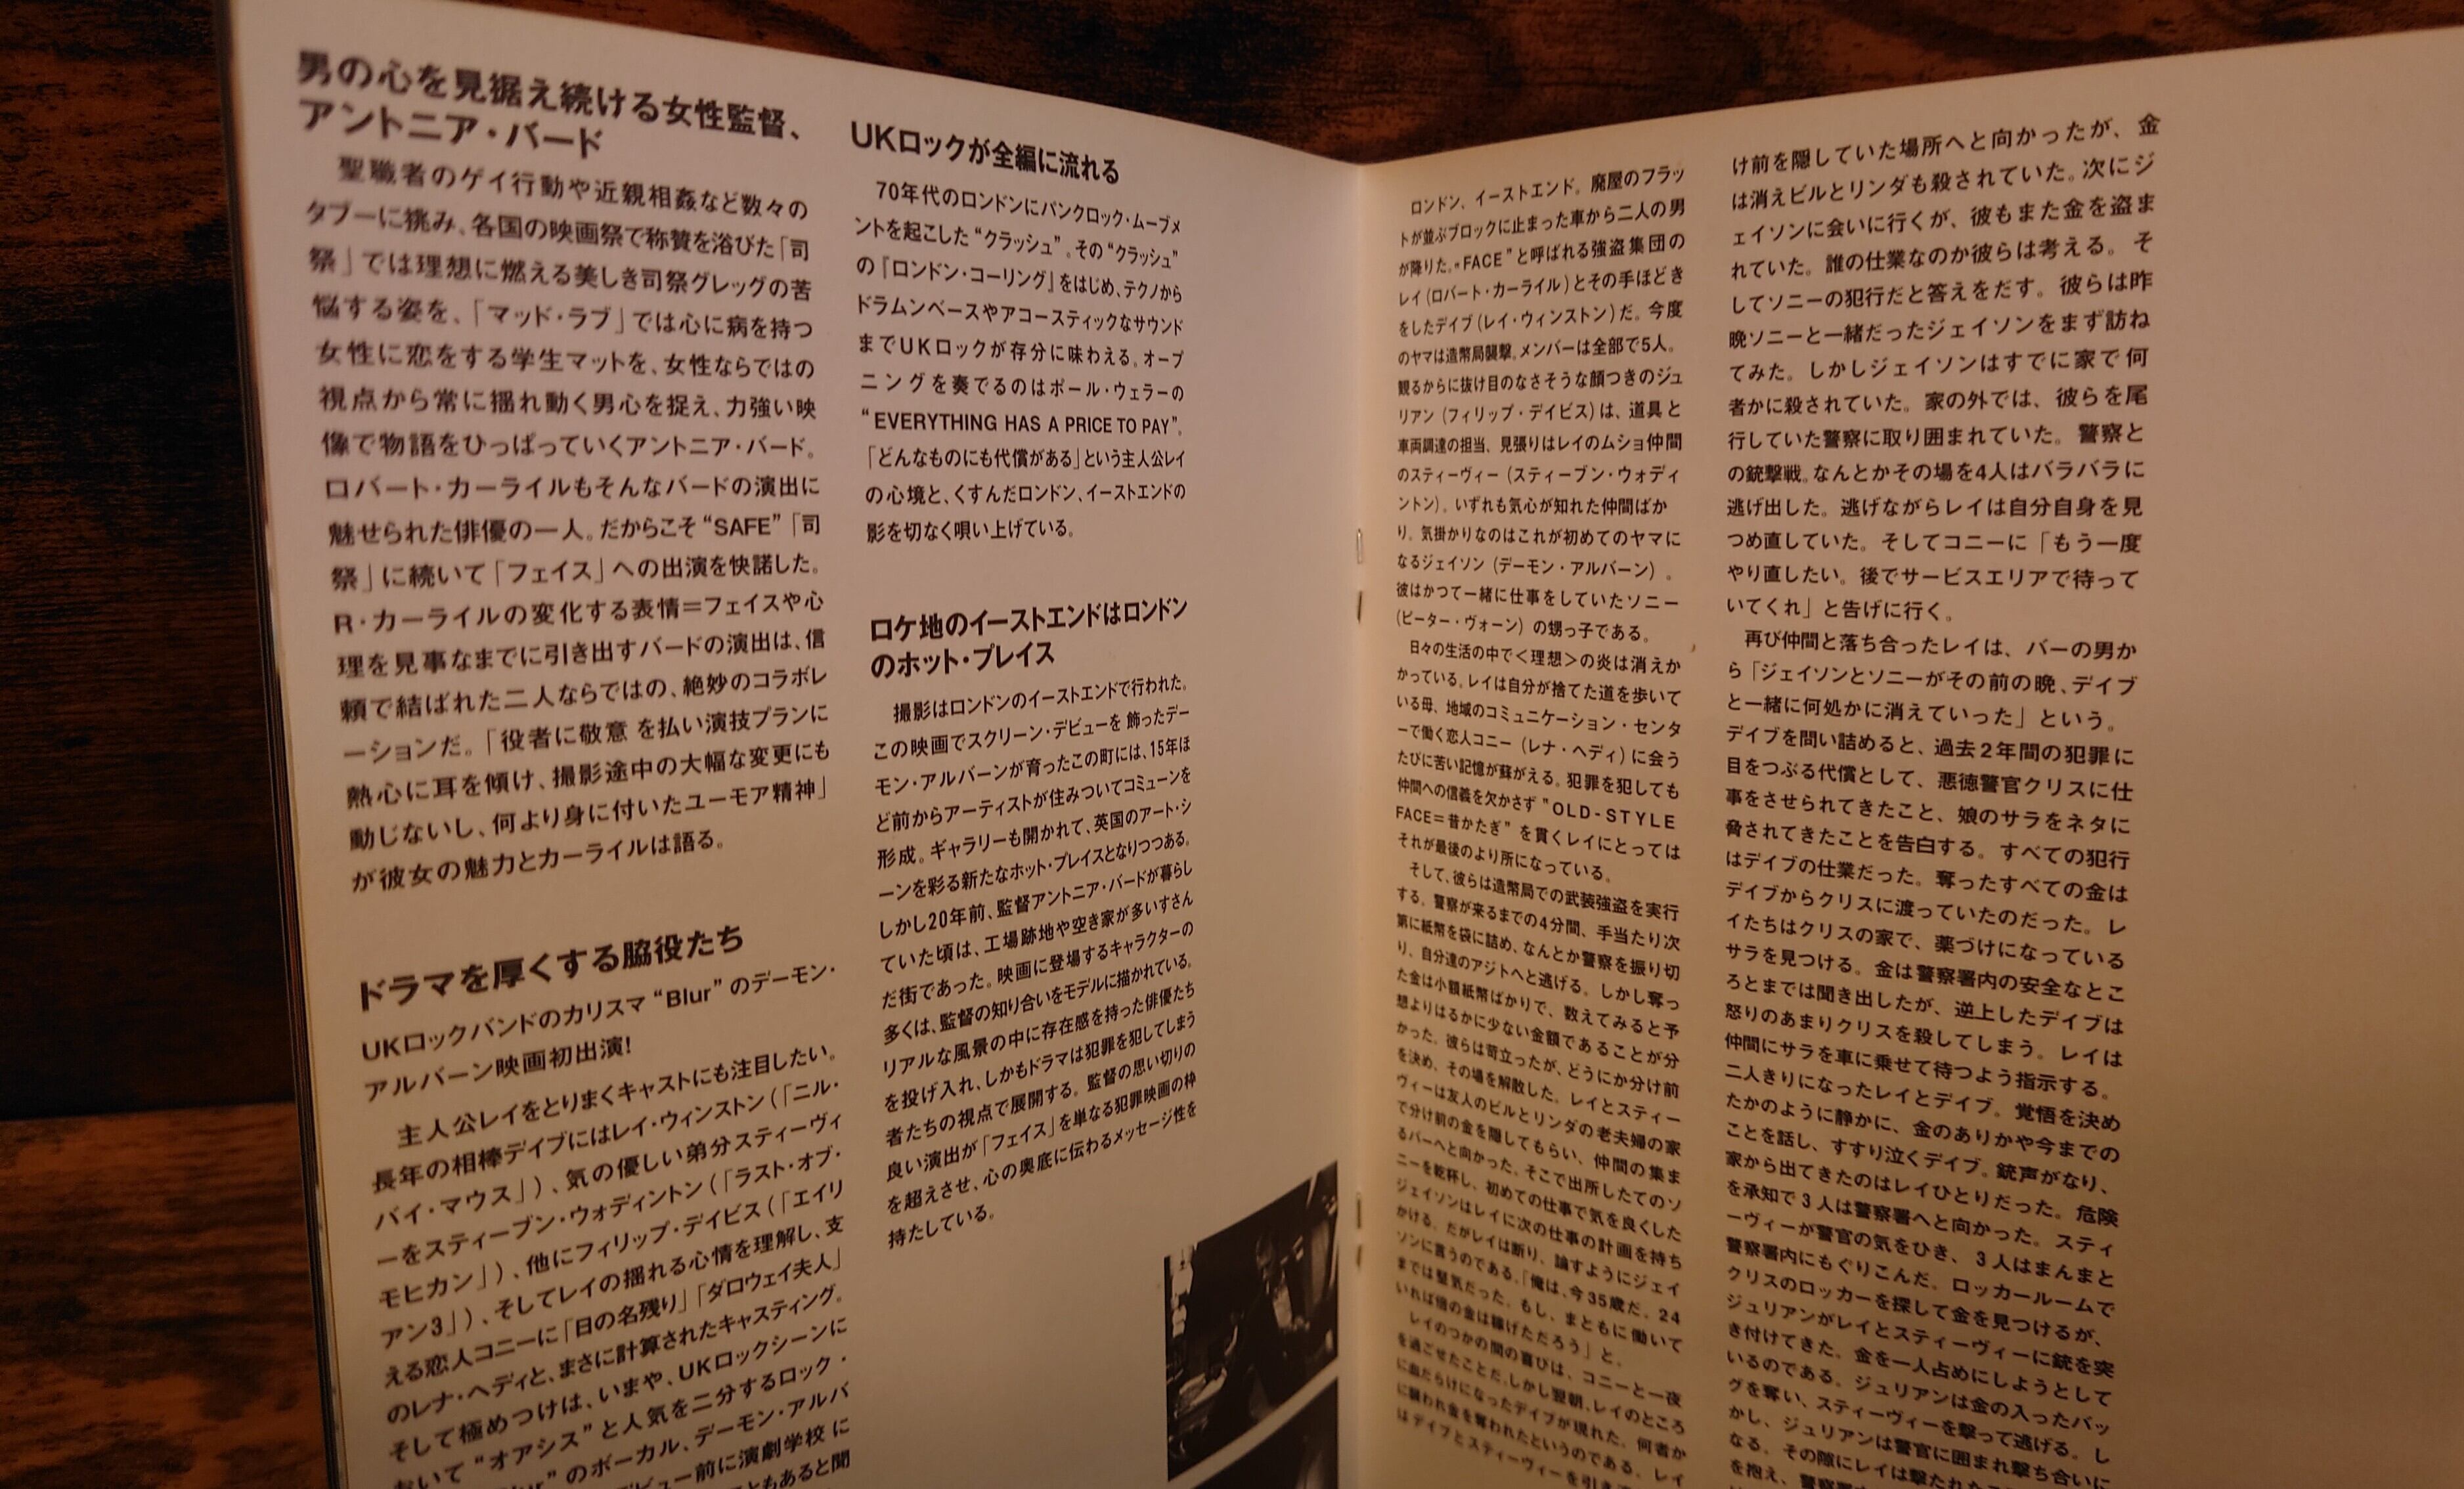 男の心を見据え続ける女性監督、
アントニア・バード
聖職者のゲイ行動や近親相姦など数々の
タブーに挑み、各国の映画祭で称賛を浴びた「司
祭」では理想に燃える美しき司祭グレッグの苦
悩する姿を、「マッド・ラブ」では心に病を持つ
女性に恋をする学生マットを、女性ならではの
視点から常に揺れ動く男心を捉え、力強い映
像で物語をひっぱっていくアントニア・バード。
ロバート・カーライルもそんなバードの演出に
魅せられた俳優の一人。だからこそ“SAFE”「司
祭」に続いて「フェイス」への出演を快諾した。
R・カーライルの変化する表情=フェイスや心
理を見事なまでに引き出すバードの演出は、信
頼で結ばれた二人ならではの、絶妙のコラボレ
ーションだ。「役者に敬意 を払い演技プランに
熱心に耳を傾け、撮影途中の大幅な変更にも
動じないし、何より身に付いたユーモア精神」
が彼女の魅力とカーライルは語る。
ドラマを厚くする脇役たち
UKロックバンドのカリスマ“Blur”のデーモン・
アルバーン映画初出演!
主人公レイをとりまくキャストにも注目したい。
長年の相棒デイブにはレイ・ウィンストン(「ニル・
バイ・マウス」)、気の優しい弟分スティーヴィ
ーをスティーブン・ウォディントン(「ラスト・オブ・
モヒカン」)、他にフィリップ・デイビス(「エイリ
アン3」)、そしてレイの揺れる心情を理解し、支
える恋人コニーに「日の名残り」「ダロウェイ夫人」
のレナ・ヘディと、まさに計算されたキャスティング。
そして極めつけは、いまや、UKロックシーンに
おいて“オアシス”と人気を二分するロック・
”のボーカル、デーモン・アルバ
ビュー前に演劇学校に
ともあると聞
UKロックが全編に流れる
70年代のロンドンにパンクロック・ムーブメ
ントを起こした“クラッシュ”。その“クラッシュ”
の『ロンドン・コーリング』をはじめ、テクノから
ドラムンベースやアコースティックなサウンド
までUKロックが存分に味わえる。オープ
ニングを奏でるのはポール・ウェラーの
“EVERYTHING HAS A PRICE TO PAY”。
「どんなものにも代償がある」という主人公レイ
の心境と、くすんだロンドン、イーストエンドの
影を切なく唄い上げている。
ロケ地のイーストエンドはロンドン
のホット・プレイス
撮影はロンドンのイーストエンドで行われた。
この映画でスクリーン・デビューを 飾ったデー
モン・アルバーンが育ったこの町には、15年ほ
ど前からアーティストが住みついてコミューンを
形成。ギャラリーも開かれて、英国のアート・シ
ーンを彩る新たなホット・プレイスとなりつつある。
しかし20年前、監督アントニア・バードが暮らし
ていた頃は、工場跡地や空き家が多いすさん
だ街であった。映画に登場するキャラクターの
多くは、監督の知り合いをモデルに描かれている。
リアルな風景の中に存在感を持った俳優たち
を投げ入れ、しかもドラマは犯罪を犯してしまう
者たちの視点で展開する。監督の思い切りの
良い演出が「フェイス」を単なる犯罪映画の枠
を超えさせ、心の奥底に伝わるメッセージ性を
持たしている。
ロンドン、イーストエンド。廃屋のフラッ
トが並ぶブロックに止まった車から二人の男
が降りた。“FACE”と呼ばれる強盗集団の
レイ(ロバート・カーライル)とその手ほどき
をしたデイブ(レイ・ウィンストン)だ。今度
のヤマは造幣局襲撃。メンバーは全部で5人。
観るからに抜け目のなさそうな顔つきのジュ
リアン(フィリップ・デイビス)は、道具と
車両調達の担当、見張りはレイのムショ仲間
のスティーヴィー(スティーブン・ウォディ
ントン)。いずれも気心が知れた仲間ばか
り。気掛かりなのはこれが初めてのヤマに
なるジェイソン(デーモン・アルバーン)。
彼はかつて一緒に仕事をしていたソニー
(ピーター・ヴォーン)の甥っ子である。
日々の生活の中で<理想>の炎は消えか
かっている。レイは自分が捨てた道を歩いて
いる母、地域のコミュニケーション・センタ
ーで働く恋人コニー(レナ・ヘディ)に会う
たびに苦い記憶が蘇がえる。犯罪を犯しても
仲間への信義を欠かさず“OLD-STYLE
FACE=昔かたぎ”を貫くレイにとっては
それが最後のより所になっている。
そして、彼らは造幣局での武装強盗を実行
する。警察が来るまでの4分間、手当たり次
第に紙幣を袋に詰め、なんとか警察を振り切
り、自分達のアジトへと逃げる。しかし奪っ
た金は小額紙幣ばかりで、数えてみると予
想よりはるかに少ない金額であることが分
かった。彼らは苛立ったが、どうにか分け前
を決め、その場を解散した。レイとスティー
ヴィーは友人のビルとリンダの老夫婦の家
で分け前の金を隠してもらい、仲間の集ま
るバーへと向かった。そこで出所したてのソ
ニーを乾杯し、初めての仕事で気を良くした
ジェイソンはレイに次の仕事の計画を持ち
かける。だがレイは断り、諭すようにジェイ
ソンに言うのである。「俺は、今35歳だ。24
までは堅気だった。もし、まともに働いて
いれば倍の金は稼げただろう」と。
レイのつかの間の喜びは、コニーと一夜
を過ごせたことだ。しかし翌朝、レイのところ
に血だらけになったデイブが現れた。何者か
に襲われ金を奪われたというのである。レイ
はデイブとスティーヴィーを引き
け前を隠していた場所へと向かったが、金
は消えビルとリンダも殺されていた。次にジ
ェイソンに会いに行くが、彼もまた金を盗ま
れていた。誰の仕業なのか彼らは考える。そ
してソニーの犯行だと答えをだす。彼らは昨
晩ソニーと一緒だったジェイソンをまず訪ね
てみた。しかしジェイソンはすでに家で何
者かに殺されていた。家の外では、彼らを尾
行していた警察に取り囲まれていた。警察と
の銃撃戦。なんとかその場を4人はバラバラに
逃げ出した。逃げながらレイは自分自身を見
つめ直していた。そしてコニーに「もう一度
やり直したい。後でサービスエリアで待って
いてくれ」と告げに行く。
再び仲間と落ち合ったレイは、バーの男か
ら「ジェイソンとソニーがその前の晩、デイブ
と一緒に何処かに消えていった」という。
デイブを問い詰めると、過去2年間の犯罪に
目をつぶる代償として、悪徳警官クリスに仕
事をさせられてきたこと、娘のサラをネタに
脅されてきたことを告白する。すべての犯行
はデイブの仕業だった。奪ったすべての金は
デイブからクリスに渡っていたのだった。レ
イたちはクリスの家で、薬づけになっている
サラを見つける。金は警察署内の安全なとこ
ろとまでは聞き出したが、逆上したデイブは
怒りのあまりクリスを殺してしまう。レイは
仲間にサラを車に乗せて待つよう指示する。
二人きりになったレイとデイブ。覚悟を決め
たかのように静かに、金のありかや今までの
ことを話し、すすり泣くデイブ。銃声がなり、
家から出てきたのはレイひとりだった。危険
を承知で3人は警察署へと向かった。スティ
ーヴィーが警官の気をひき、3人はまんまと
警察署内にもぐりこんだ。ロッカールームで
クリスのロッカーを探して金を見つけるが、
ジュリアンがレイとスティーヴィーに銃を突
き付けてきた。金を一人占めにしようとして
いるのである。ジュリアンは金の入ったバッ
グを奪い、スティーヴィーを撃って逃げる。し
かし、ジュリアンは警官に囲まれ撃ち合いに
なる。その隙にレイは撃たれた
を抱え、警察